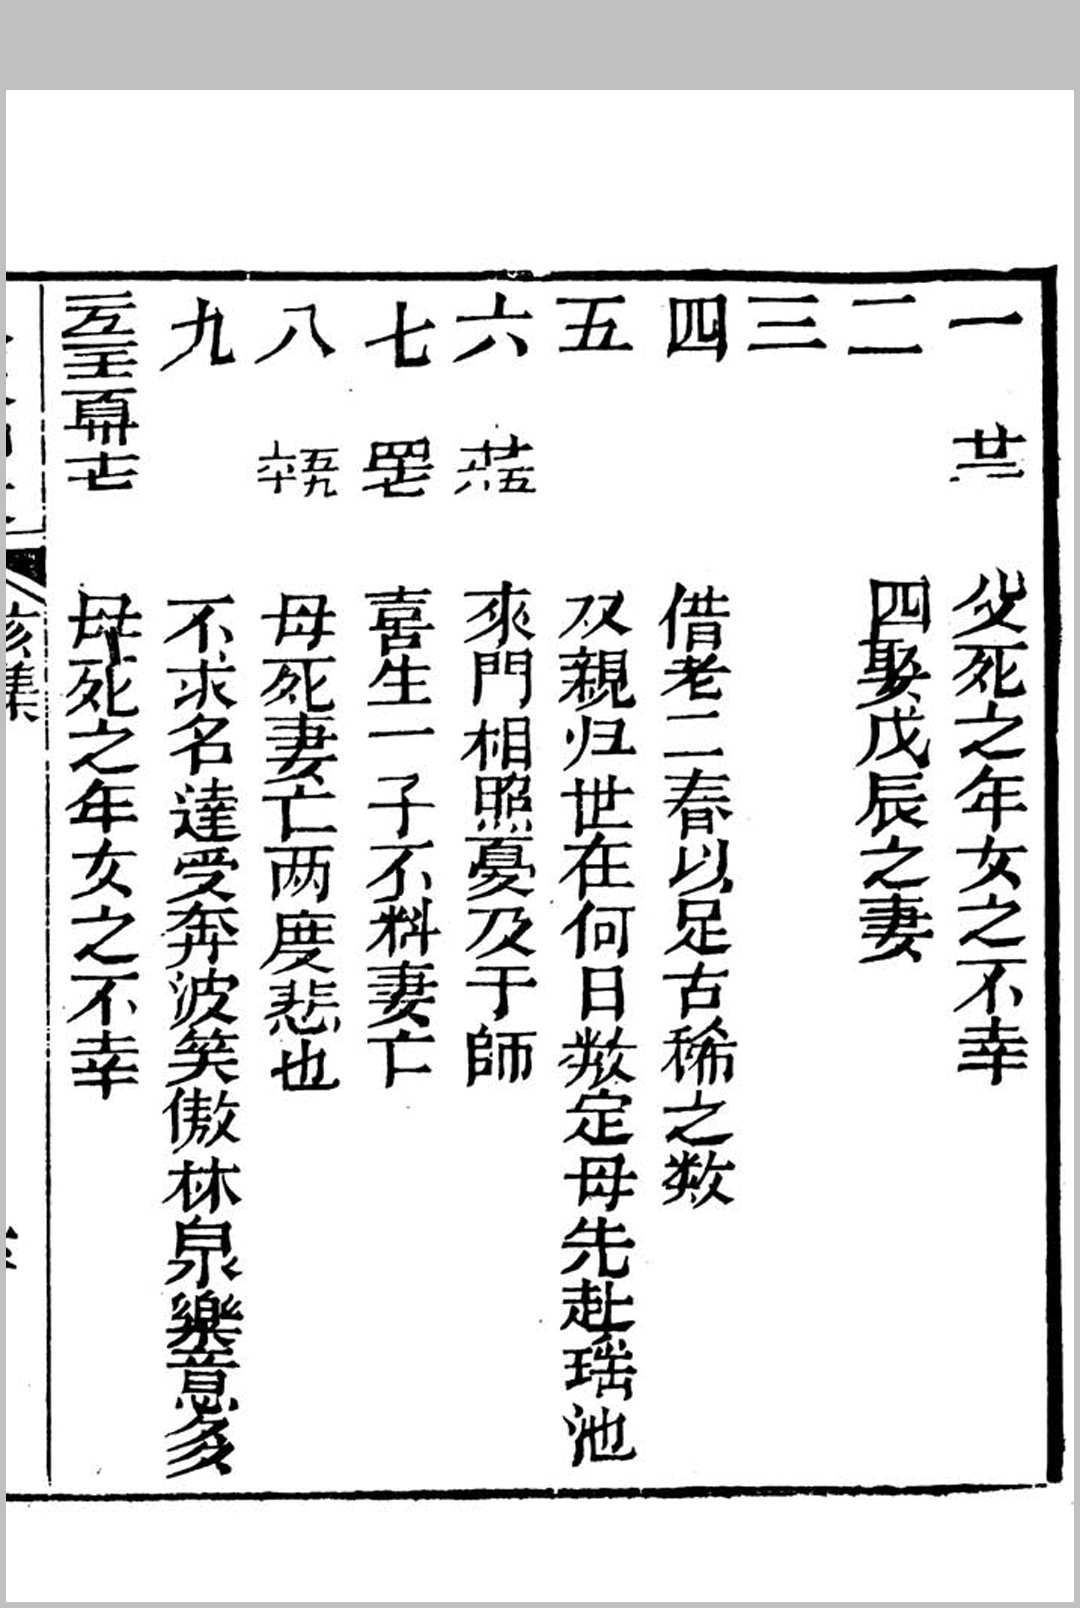 一 廿三 父死之年女之不幸
二 四娶戊辰之妻
三
四 借老二春以足古稀之数
五 双親归世在何日数定母先赴瑶池
六 來門相照憂及于師
七 喜生一子不料妻亡
八 母死妻亡两度悲也
九 不求名達受奔波笑傲林泉樂意多
母死之年女之不幸
亥集